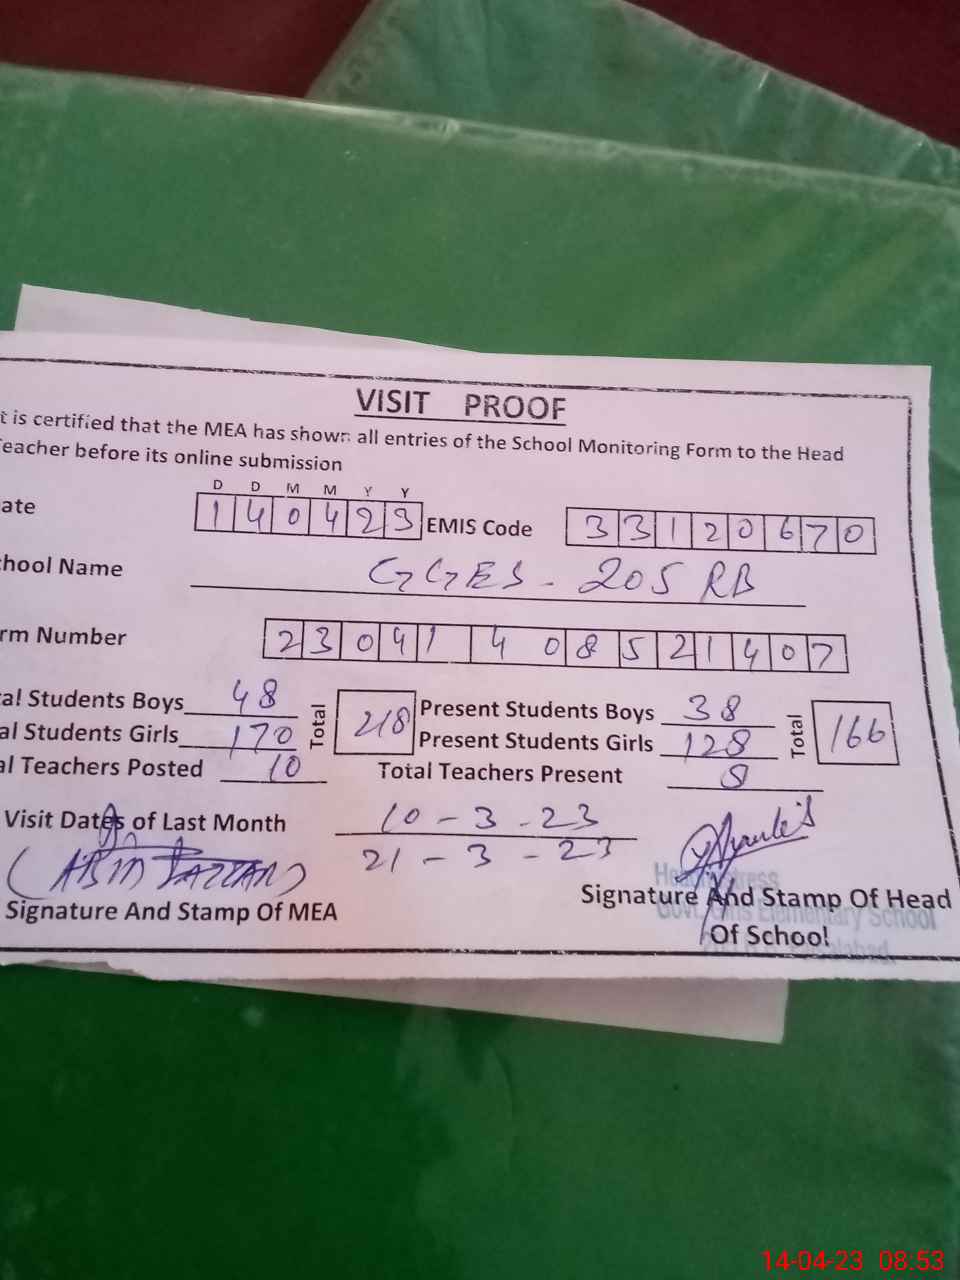 VISIT PROOF
t is certified that the MEA has shown all entries of the School Monitoring Form to the Head
eacher before its online submission
D D M M Y Y
ate 1 4 0 4 2 3 EMIS Code 3 3 1 2 0 6 7 0
hool Name GGES - 205 RB
rm Number 2 3 0 4 1 4 0 8 5 2 1 4 0 7
al Students Boys 48 Total 218 Present Students Boys 38 Total 166
al Students Girls 170 Present Students Girls 128
al Teachers Posted 10 Total Teachers Present 8
Visit Dates of Last Month 10 - 3 - 23
21 - 3 - 23
Signature And Stamp Of MEA
Signature And Stamp Of Head
Of School
Govt. Girls Elementary School
14-04-23 08:53